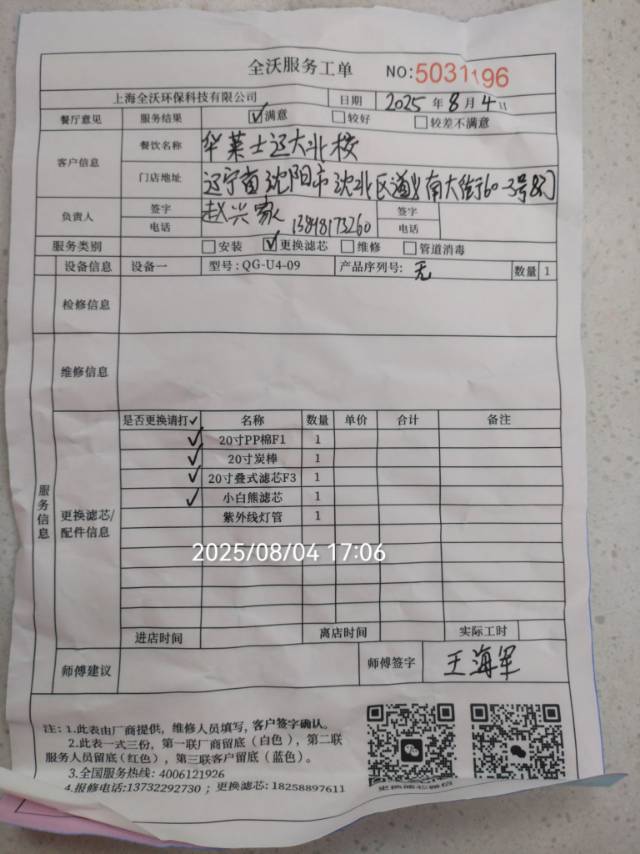 全沃服务工单 NO:5031196
上海全沃环保科技有限公司 日期 2025年8月4日
餐厅意见 服务结果 ☑满意 ☐较好 ☐较差不满意
客户信息 餐饮名称 华莱士辽大北校
门店地址 辽宁省沈阳市沈北区道义南大街60-3号
负责人 签字 赵兴家 签字
电话 13898173260 电话
服务类别 ☐安装 ☑更换滤芯 ☐维修 ☐管道消毒
设备信息 设备一 型号:QG-U4-09 产品序列号: 无 数量 1
检修信息
维修信息
服务信息
更换滤芯/配件信息
是否更换请打✓ 名称 数量 单价 合计 备注
✓ 20寸PP棉F1 1
✓ 20寸炭棒 1
✓ 20寸叠式滤芯F3 1
✓ 小白熊滤芯 1
紫外线灯管 1
2025/08/04 17:06
进店时间 离店时间 实际工时
师傅建议 师傅签字 王海军
注:1.此表由厂商提供,维修人员填写,客户签字确认。
2.此表一式三份,第一联厂商留底(白色),第二联
服务人员留底(红色),第三联客户留底(蓝色)。
3.全国服务热线: 4006121926
4.报修电话:13732292730 ; 更换滤芯: 18258897611